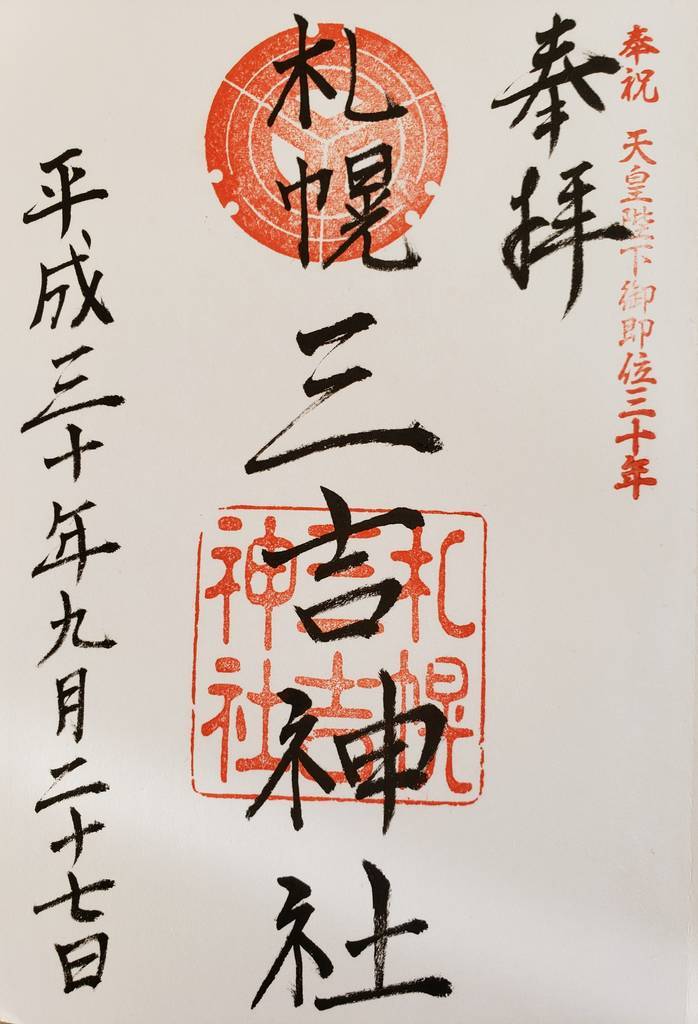 奉祝 天皇陛下御即位三十年
奉拝
札幌三吉神社
札幌
三吉
神社
平成三十年九月二十七日